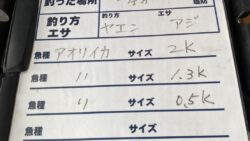 釣った場所
釣り方 釣り方
エサ ヤエン アジ
魚種 アオリイカ サイズ 2K
魚種 〃 サイズ 1.3K
魚種 〃 サイズ 0.5K
魚種 サイズ